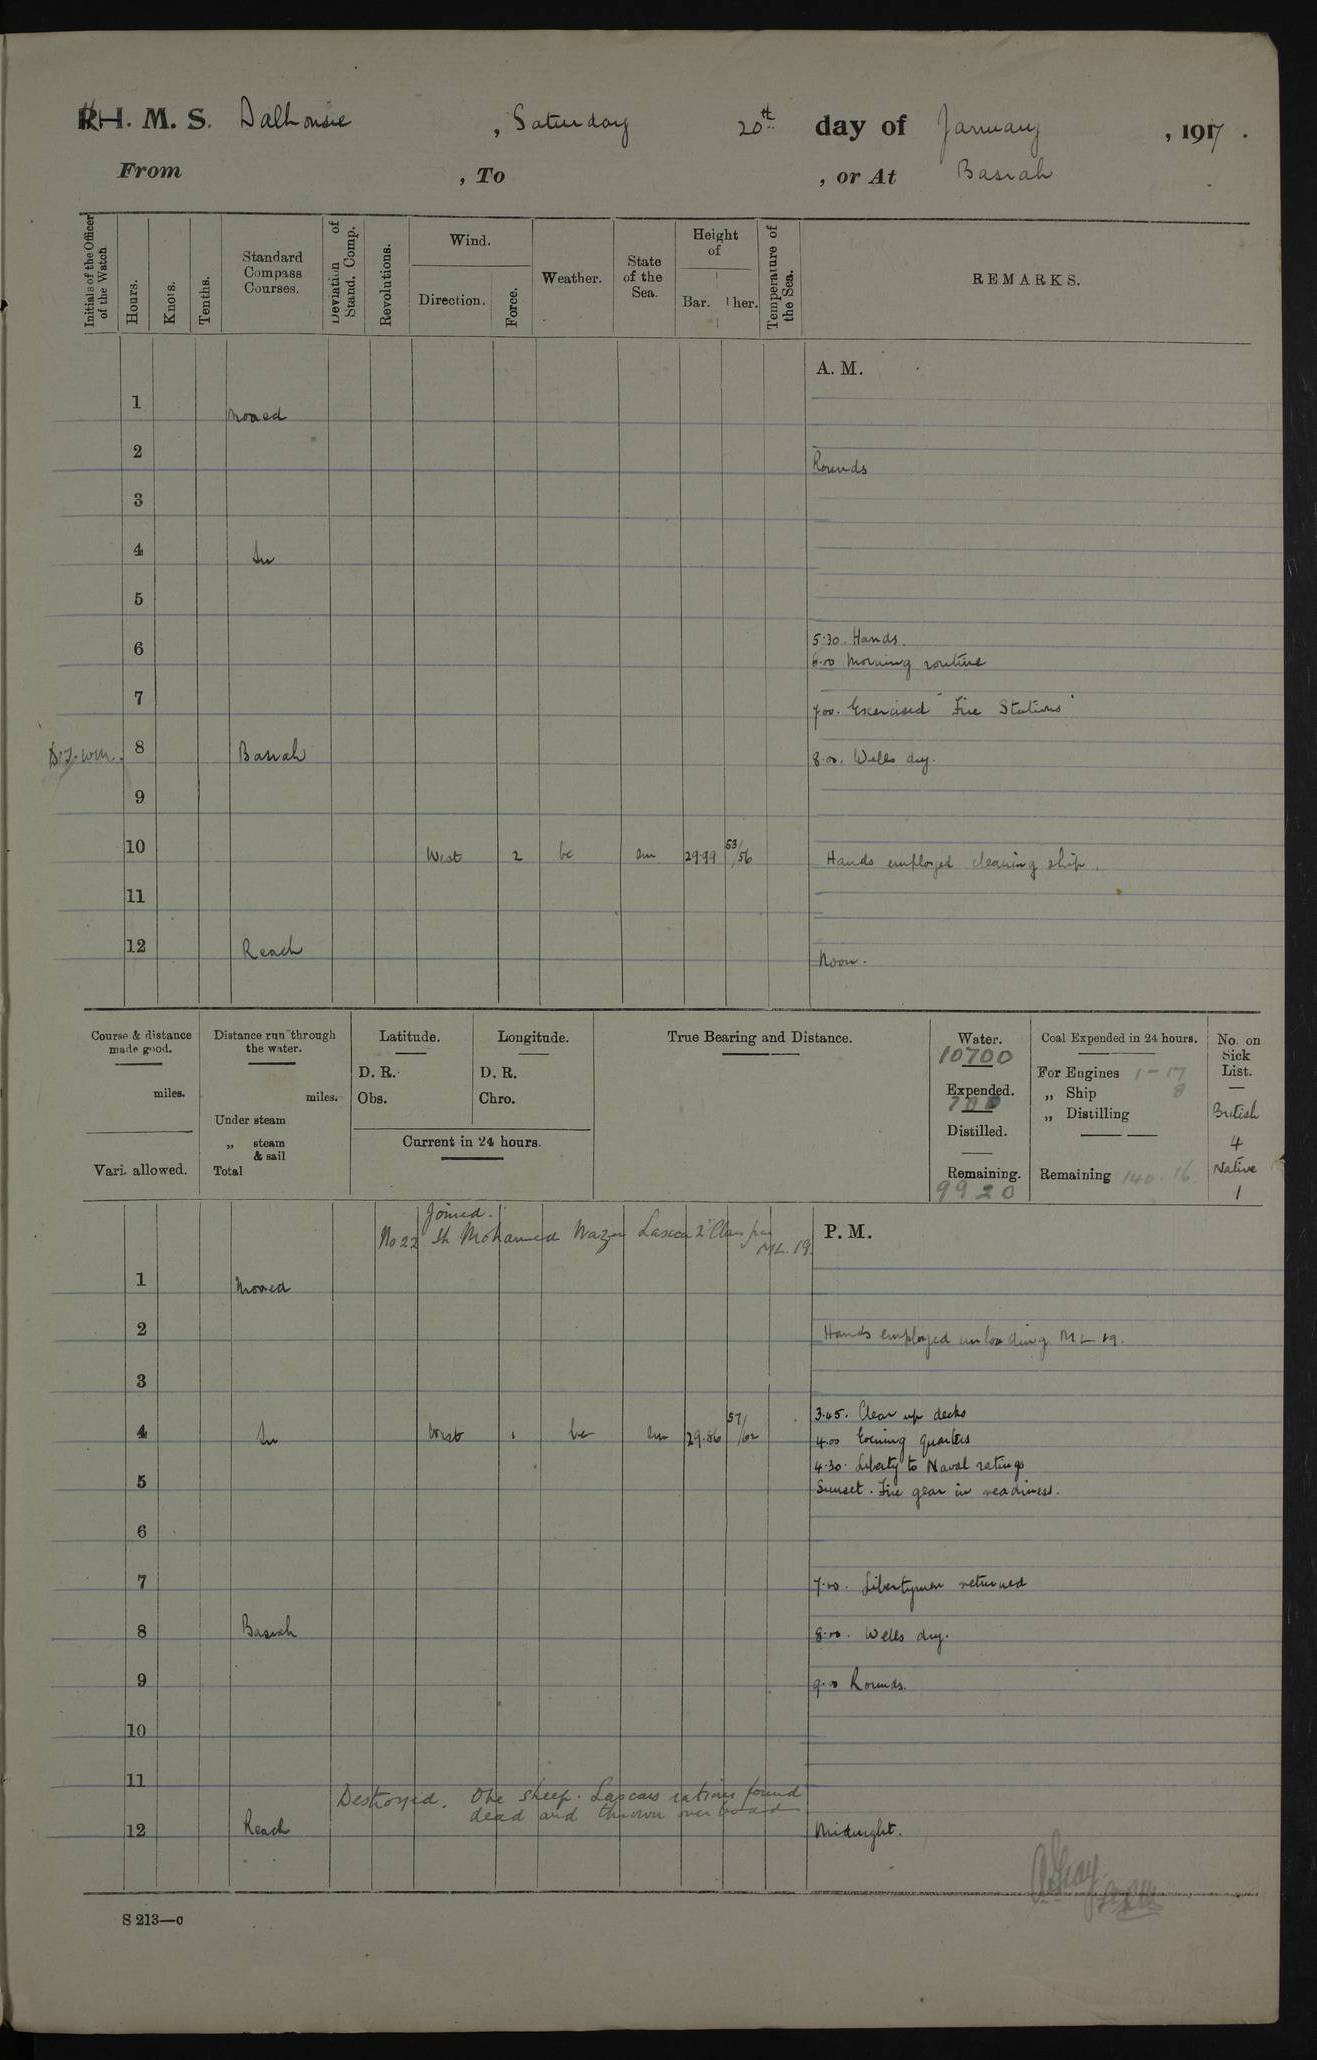 H. M. S. Dalhousie, Saturday 20th day of January, 1917.
From , To , or At Basrah
Initials of the Officer of the Watch
Hours.
Knots.
Tenths.
Standard Compass Courses.
Deviation of Stand. Comp.
Revolutions.
Wind.
Direction.
Force.
Weather.
State of the Sea.
Height of
Bar. Ther.
Temperature of the Sea.
REMARKS.
A. M.
1 Moored
2 Rounds
3
4 In
5
5.30. Hands.
6 6.00 Morning routine
7 7.00. Exercised "Fire Stations"
8 Basrah 8.00. Wells dry.
9
10 West 2 bc sm 29.99 53/56 Hands employed cleaning ship.
11
12 Reach Noon.
Course & distance made good.
miles.
Vari. allowed.
Distance run through the water.
miles.
Under steam
„ steam & sail
Total
Latitude.
D. R.
Obs.
Longitude.
D. R.
Chro.
Current in 24 hours.
True Bearing and Distance.
Water.
10700
Expended.
Distilled.
Remaining.
9920
Coal Expended in 24 hours.
For Engines 1-17
„ Ship 8
„ Distilling
Remaining 140.16
No. on Sick List.
British
4
Native
1
Joined.
No 22 Sh Mohamed Lascar 2 Class
ML. 19.
P. M.
1 Moored
2 Hands employed unloading ML 19.
3
3.45. Clear up decks
4 In West 1 bc sm 29.86 57/62 4.00 Evening quarters
4.30. Liberty to Naval ratings
5 Sunset. Fire gear in readiness.
6
7 7.00. Libertymen returned
8 Basrah 8.00. Wells dry.
9 9.00 Rounds.
10
11
Destroyed. One sheep. Lascars rations found
dead and thrown overboard
12 Reach Midnight.
S 213—c